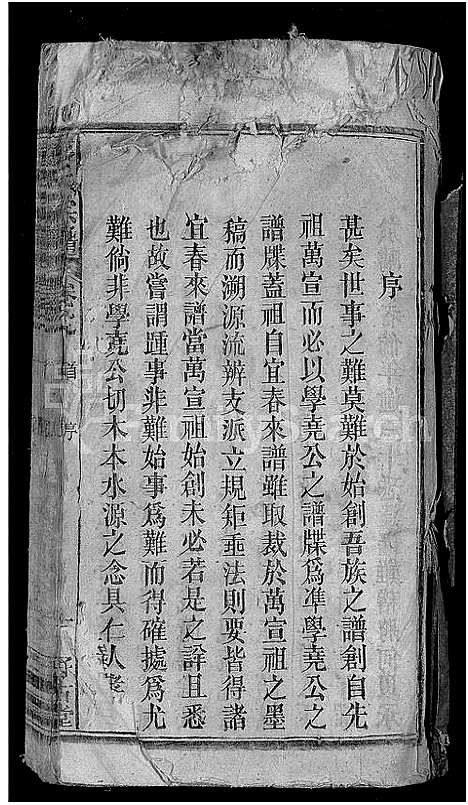 序
甚矣世事之難莫難於始創吾族之譜創自先
祖萬宣而必以學堯公之譜牒爲準學堯公之
譜牒蓋祖自宜春來譜雖取裁於萬宣祖之墨
稿而溯源流辨支派立規矩垂法則要皆得諸
宜春來譜當萬宣祖始創未必若是之詳且悉
也故嘗謂踵事非難始事爲難而得確據爲尤
難倘非學堯公切木本水源之念具仁人孝
宗譜 首序